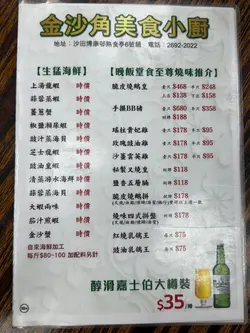 金沙角美食小廚
地址：沙田博康邨熟食亭6號舖 電話：2692-2022
【生猛海鮮】
上海龍蝦 時價
蒜蓉蒸蝦 時價
薑蔥蟹 時價
椒鹽瀨尿蝦 時價
豉汁蒸海貝 時價
芝士龍蝦 時價
豉油皇蝦 時價
清蒸游水海鮮 時價
蒜蓉蒸海貝 時價
大蝦兩味 時價
茄汁煎蝦 時價
金沙蟹 時價
自來海鮮加工
每斤$80-100 加配料另計
【晚飯堂食至尊燒味推介】
脆皮燒鵝皇 $468 $248
$138 $158
手撕BB豬 $680 $358
$188
瑤柱貴妃雞 $178 $95
豉油皇雞 $178 $95
沙薑霸王雞 $178 $95
秘製叉燒皇 $118
鹽香五層腩 $118
脆皮燒鵝拼 $118
燒味四式拼盤 $178
紅燒乳鴿王 $75
豉油乳鴿王 $75
醇滑嘉士伯大樽裝
$35/樽